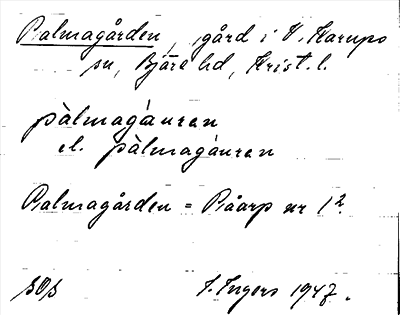 Palmagården, gård i V. Karups
sn, Bjäre hd, Krist. l.
pàlmagáuren
el. pàlmagáuren
Palmagården = Båarp nr 1².
I. Ingers 1947.